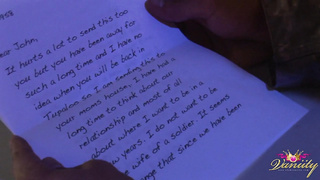 ear John,
It hurts a lot to send this too
you but you have been away for
such a long time and I have no
idea when you will be back in
Tupaloo so I am sending this to
your I have had a
long time to think about our
relationship and most of all
about where I want to be in a
w years. I do not want to be
e wife of a soldier. It seems
ange that since we have been
Vanuity